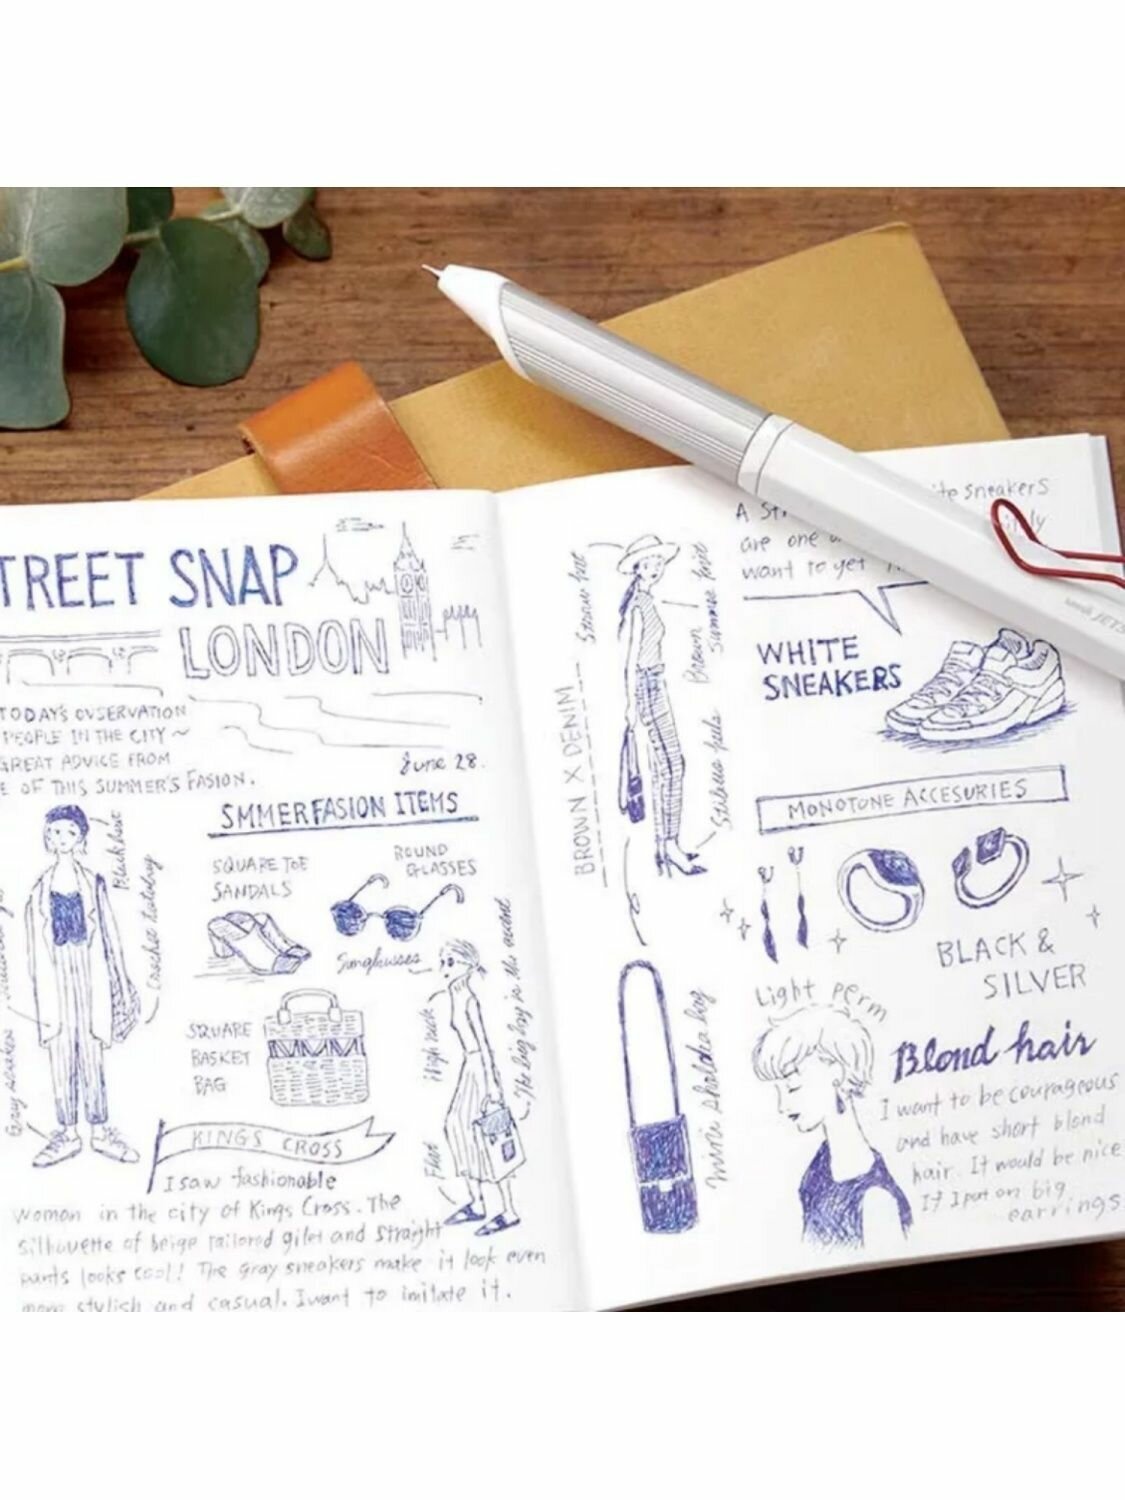 TREET SNAP
LONDON
TODAY'S OVSERVATION
PEOPLE IN THE CITY ~
GREAT ADVICE FROM
E OF THIS SUMMER'S FASION.
June 28.
SMMER FASION ITEMS
SQUARE TOE
SANDALS
ROUND
GLASSES
Sunglasses
SQUARE
BASKET
BAG
High neck
Flat
The big bag is the accent
KINGS CROSS
I saw fashionable
woman in the city of Kings Cross. The
silhouette of beige tailored gilet and straight
pants looks cool! The gray sneakers make it look even
more stylish and casual. I want to imitate it.
BROWN X DENIM
Straw hat
Brown
Summer knit
mini sholdha bag
te sneakers
A
are one
want to yet
WHITE
SNEAKERS
MONOTONE ACCESURIES
BLACK &
SILVER
Light perm
Blond hair
I want to be courageous
and have short blond
hair. It would be nice
If I put on big
earrings
uni JETS